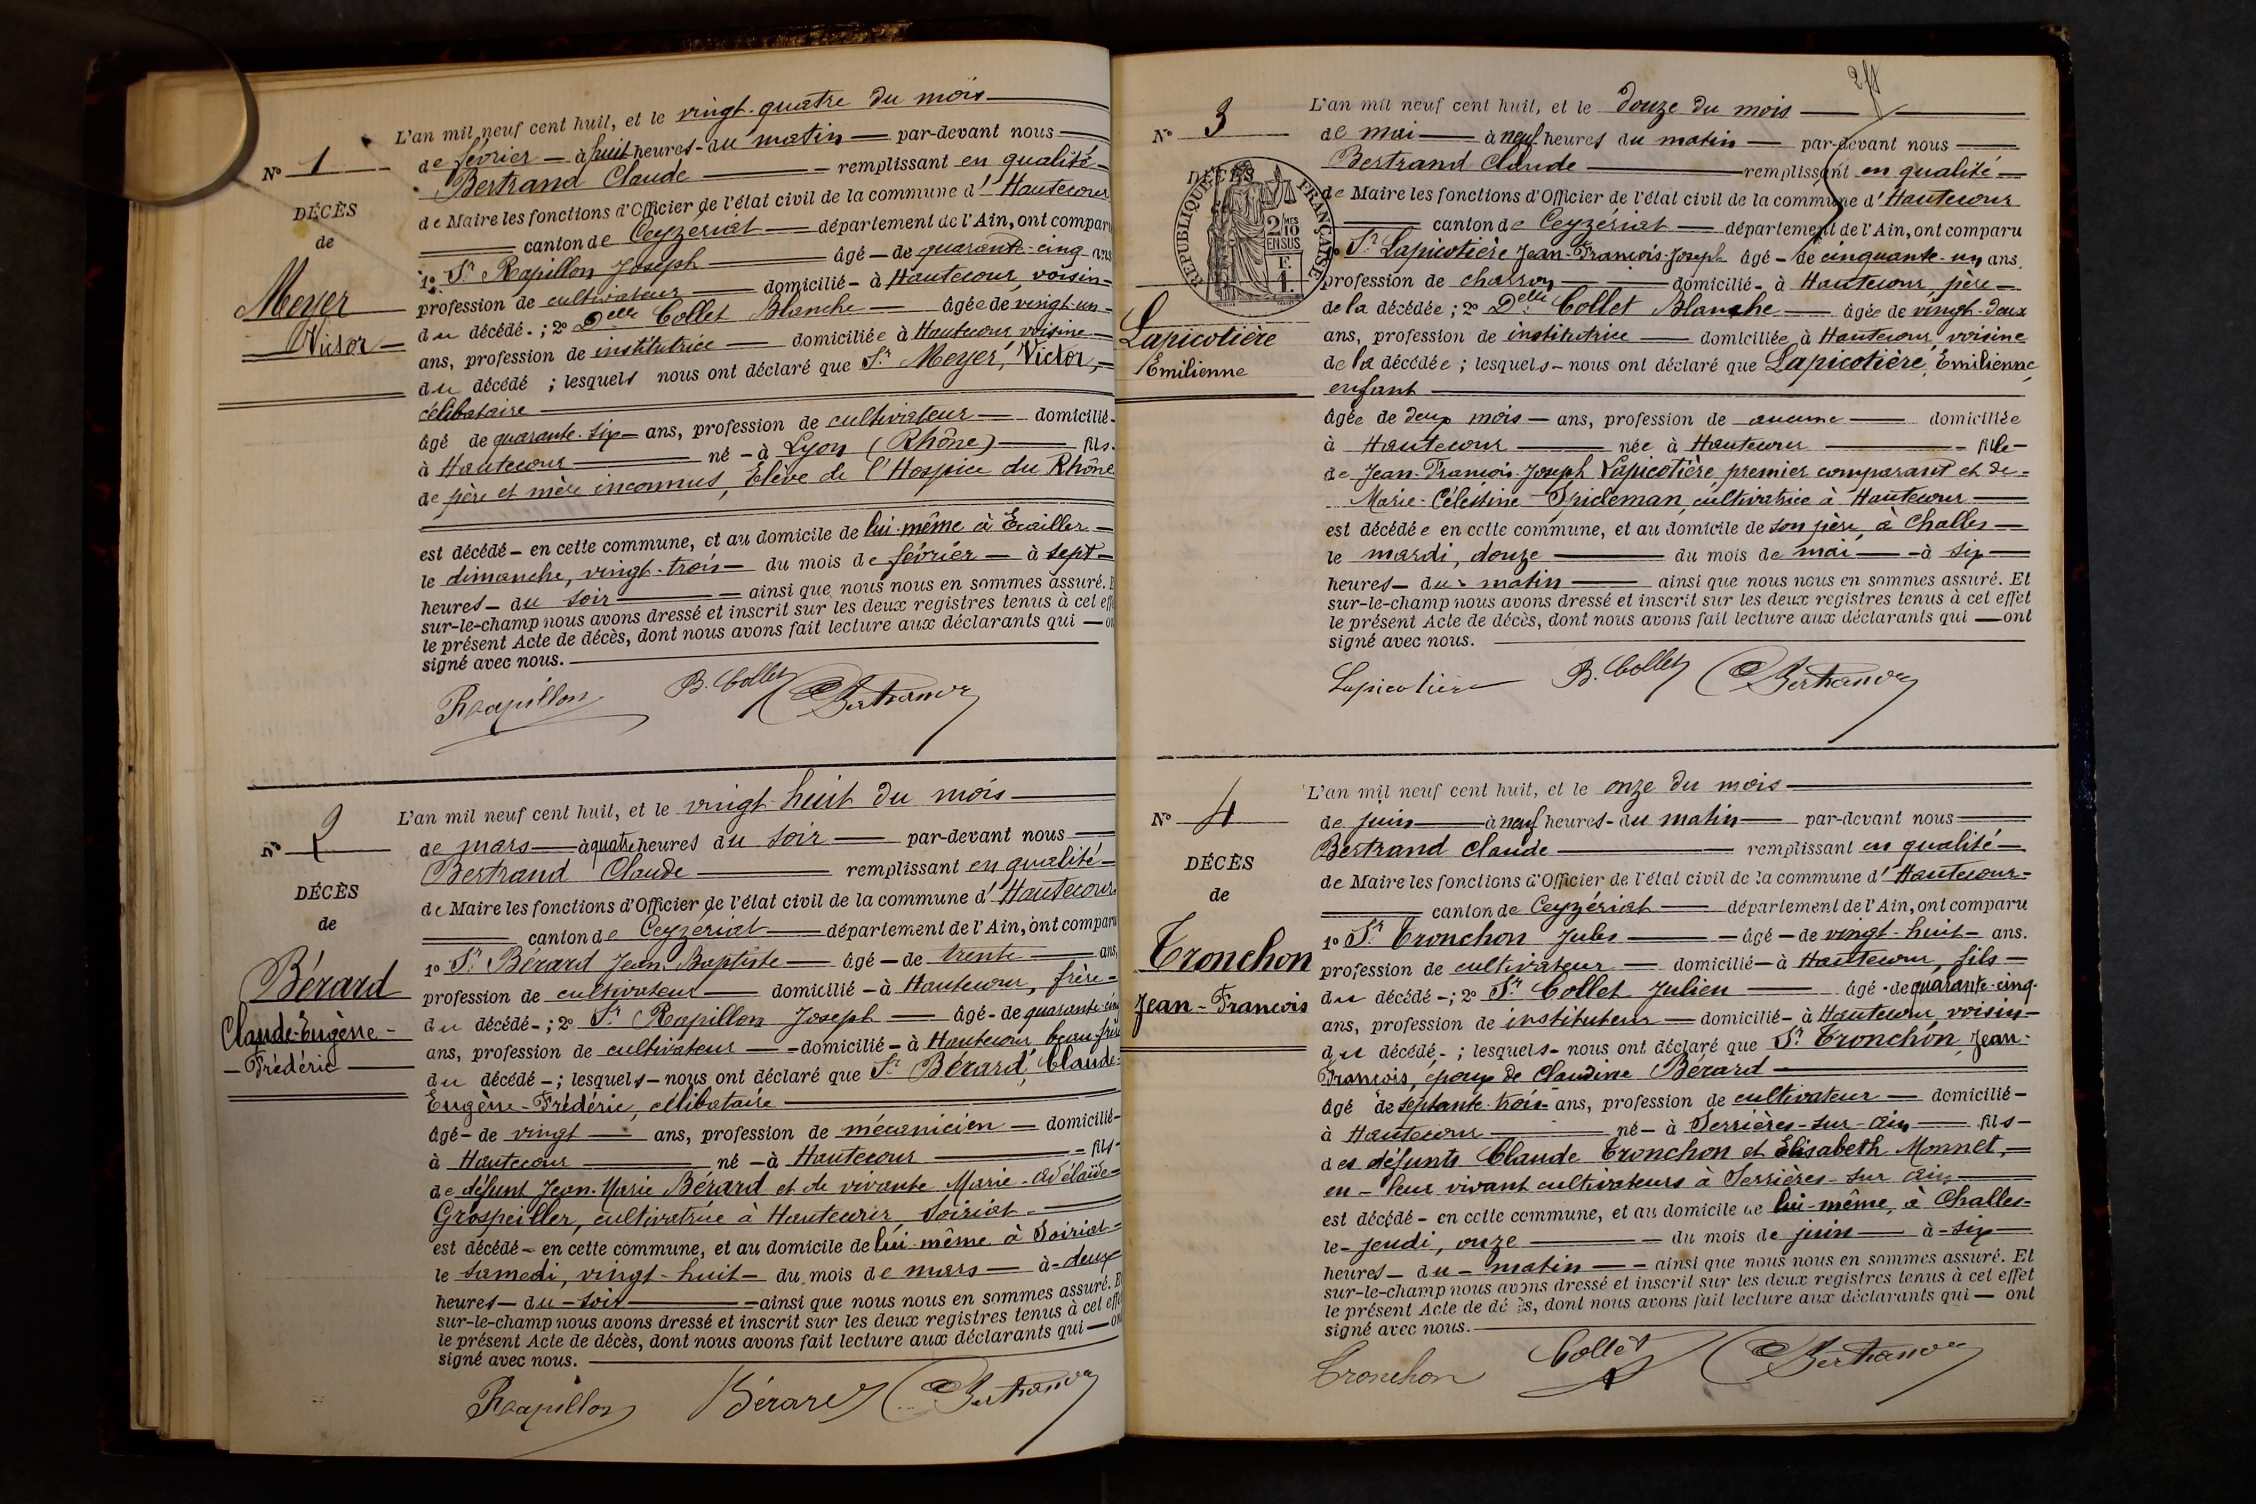 L'an mil neuf cent huit, et le vingt-quatre du mois
N° 1
de février à huit heures du matin par-devant nous
Bertrand Claude remplissant en qualité
DÉCÈS
de Maire les fonctions d'Officier de l'état civil de la commune d'Hautecour
de
canton de Ceyzériat département de l'Ain, ont comparu
1° Sr Rapillon Joseph âgé de quarante-cinq ans
Meyer
profession de cultivateur domicilié à Hautecour, voisin
Victor
du décédé ; 2° Delle Collet Blanche âgée de vingt-un
ans, profession de institutrice domiciliée à Hautecour voisine
du décédé ; lesquels nous ont déclaré que Sr Meyer, Victor,
célibataire
âgé de quarante-six ans, profession de cultivateur domicilié
à Hautecour né à Lyon (Rhône) fils
de père et mère inconnus, Elève de l'Hospice du Rhône
est décédé en cette commune, et au domicile de lui-même à
le dimanche, vingt-trois du mois de février à sept
heures du soir ainsi que nous nous en sommes assuré.
sur-le-champ nous avons dressé et inscrit sur les deux registres tenus à cet
le présent Acte de décès, dont nous avons fait lecture aux déclarants qui
signé avec nous.
Rapillon B. Collet Bertrand
L'an mil neuf cent huit, et le vingt-huit du mois
N° 2
de mars à quatre heures du soir par-devant nous
Bertrand Claude remplissant en qualité
DÉCÈS
de Maire les fonctions d'Officier de l'état civil de la commune d'Hautecour
de
canton de Ceyzériat département de l'Ain, ont comparu
1° Sr Bérard Jean-Baptiste âgé de trente ans,
Bérard
profession de cultivateur domicilié à Hautecour, frère
Claude-Eugène-
du décédé ; 2° Sr Rapillon Joseph âgé de quarante-cinq
Frédéric
ans, profession de cultivateur domicilié à Hautecour beau-frère
du décédé ; lesquels nous ont déclaré que Sr Bérard, Claude-
Eugène-Frédéric, célibataire
âgé de vingt ans, profession de mécanicien domicilié
à Hautecour né à Hautecour fils
de défunt Jean-Marie Bérard et de vivante Marie-Adélaïde
Grospeiller, cultivatrice à Hautecour Soiriat
est décédé en cette commune, et au domicile de lui-même à Soiriat
le samedi, vingt-huit du mois de mars à deux
heures du soir ainsi que nous nous en sommes assuré. Et
sur-le-champ nous avons dressé et inscrit sur les deux registres tenus à cet
le présent Acte de décès, dont nous avons fait lecture aux déclarants qui
signé avec nous.
Rapillon Bérard Bertrand
L'an mil neuf cent huit, et le douze du mois
N° 3
de mai à neuf heures du matin par-devant nous
Bertrand Claude remplissant en qualité
DÉCÈS
RÉPUBLIQUE FRANÇAISE
2/10 MES
EN SUS
F.
1.
de Maire les fonctions d'Officier de l'état civil de la commune d'Hautecour
canton de Ceyzériat département de l'Ain, ont comparu
Sr Lapicotière Jean-François-Joseph âgé de cinquante-un ans,
profession de charron domicilié à Hautecour père
de la décédée ; 2° Delle Collet Blanche âgée de vingt-deux
Lapicotière
ans, profession de institutrice domiciliée à Hautecour voisine
Emilienne
de la décédée ; lesquels nous ont déclaré que Lapicotière, Emilienne,
enfant
âgée de deux mois ans, profession de aucune domiciliée
à Hautecour née à Hautecour fille
de Jean-François-Joseph Lapicotière, premier comparant et de
Marie-Célestine Spideman, cultivatrice à Hautecour
est décédée en cette commune, et au domicile de son père, à Challes
le mardi, douze du mois de mai à six
heures du matin ainsi que nous nous en sommes assuré. Et
sur-le-champ nous avons dressé et inscrit sur les deux registres tenus à cet effet
le présent Acte de décès, dont nous avons fait lecture aux déclarants qui ont
signé avec nous.
Lapicotière B. Collet Bertrand
L'an mil neuf cent huit, et le onze du mois
N° 4
de juin à neuf heures du matin par-devant nous
Bertrand Claude remplissant en qualité
DÉCÈS
de Maire les fonctions d'Officier de l'état civil de la commune d'Hautecour
de
canton de Ceyzériat département de l'Ain, ont comparu
1° Sr Tronchon Jules âgé de vingt-huit ans.
Tronchon
profession de cultivateur domicilié à Hautecour, fils
Jean-François
du décédé ; 2° Sr Collet Julien âgé de quarante-cinq
ans, profession de instituteur domicilié à Hautecour, voisin
du décédé ; lesquels nous ont déclaré que Sr Tronchon, Jean-
François, époux de Claudine Bérard
âgé de septante-trois ans, profession de cultivateur domicilié
à Hautecour né à Serrières-sur-Ain fils
des défunts Claude Tronchon et Elisabeth Monnet,
en leur vivant cultivateurs à Serrières-sur-Ain
est décédé en cette commune, et au domicile de lui-même, à Challes
le jeudi, onze du mois de juin à six
heures du matin ainsi que nous nous en sommes assuré. Et
sur-le-champ nous avons dressé et inscrit sur les deux registres tenus à cet effet
le présent Acte de décès, dont nous avons fait lecture aux déclarants qui ont
signé avec nous.
Tronchon Collet Bertrand